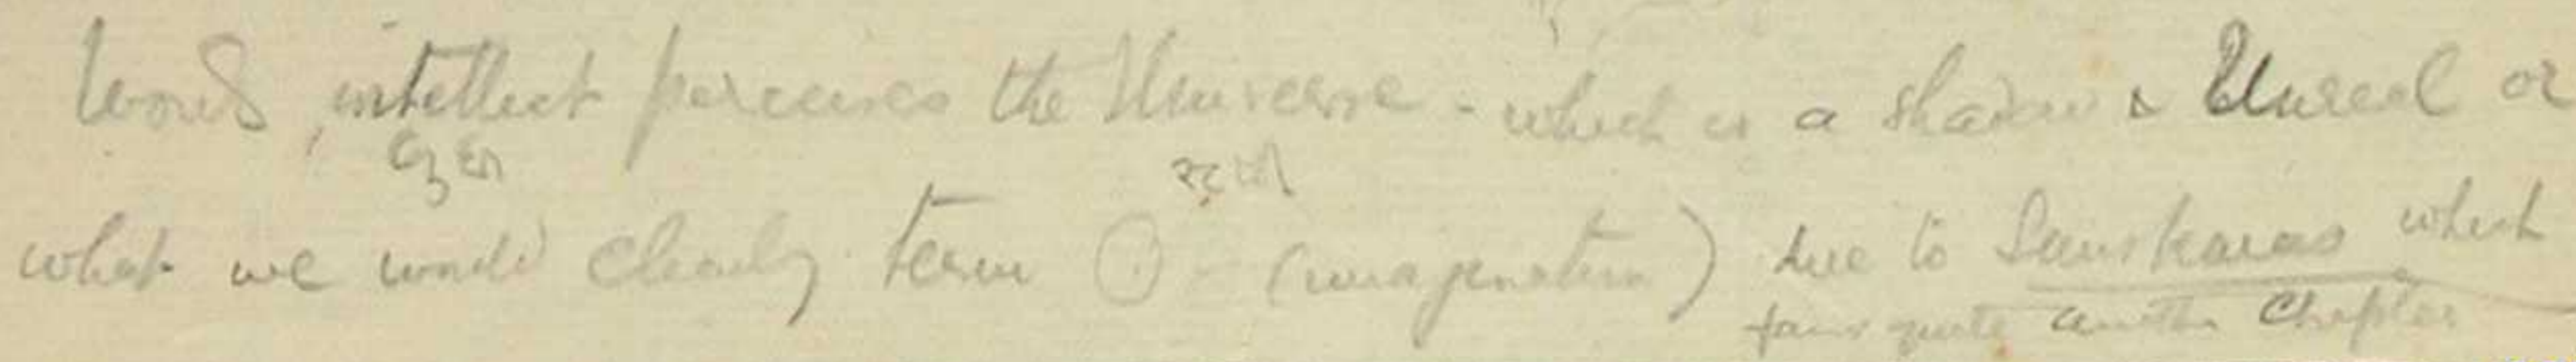 words, intellect perceives the Universe - which is a shadow & Unreal or
what we would clearly term (imagination) due to Sanskaras which
forms quite another Chapter